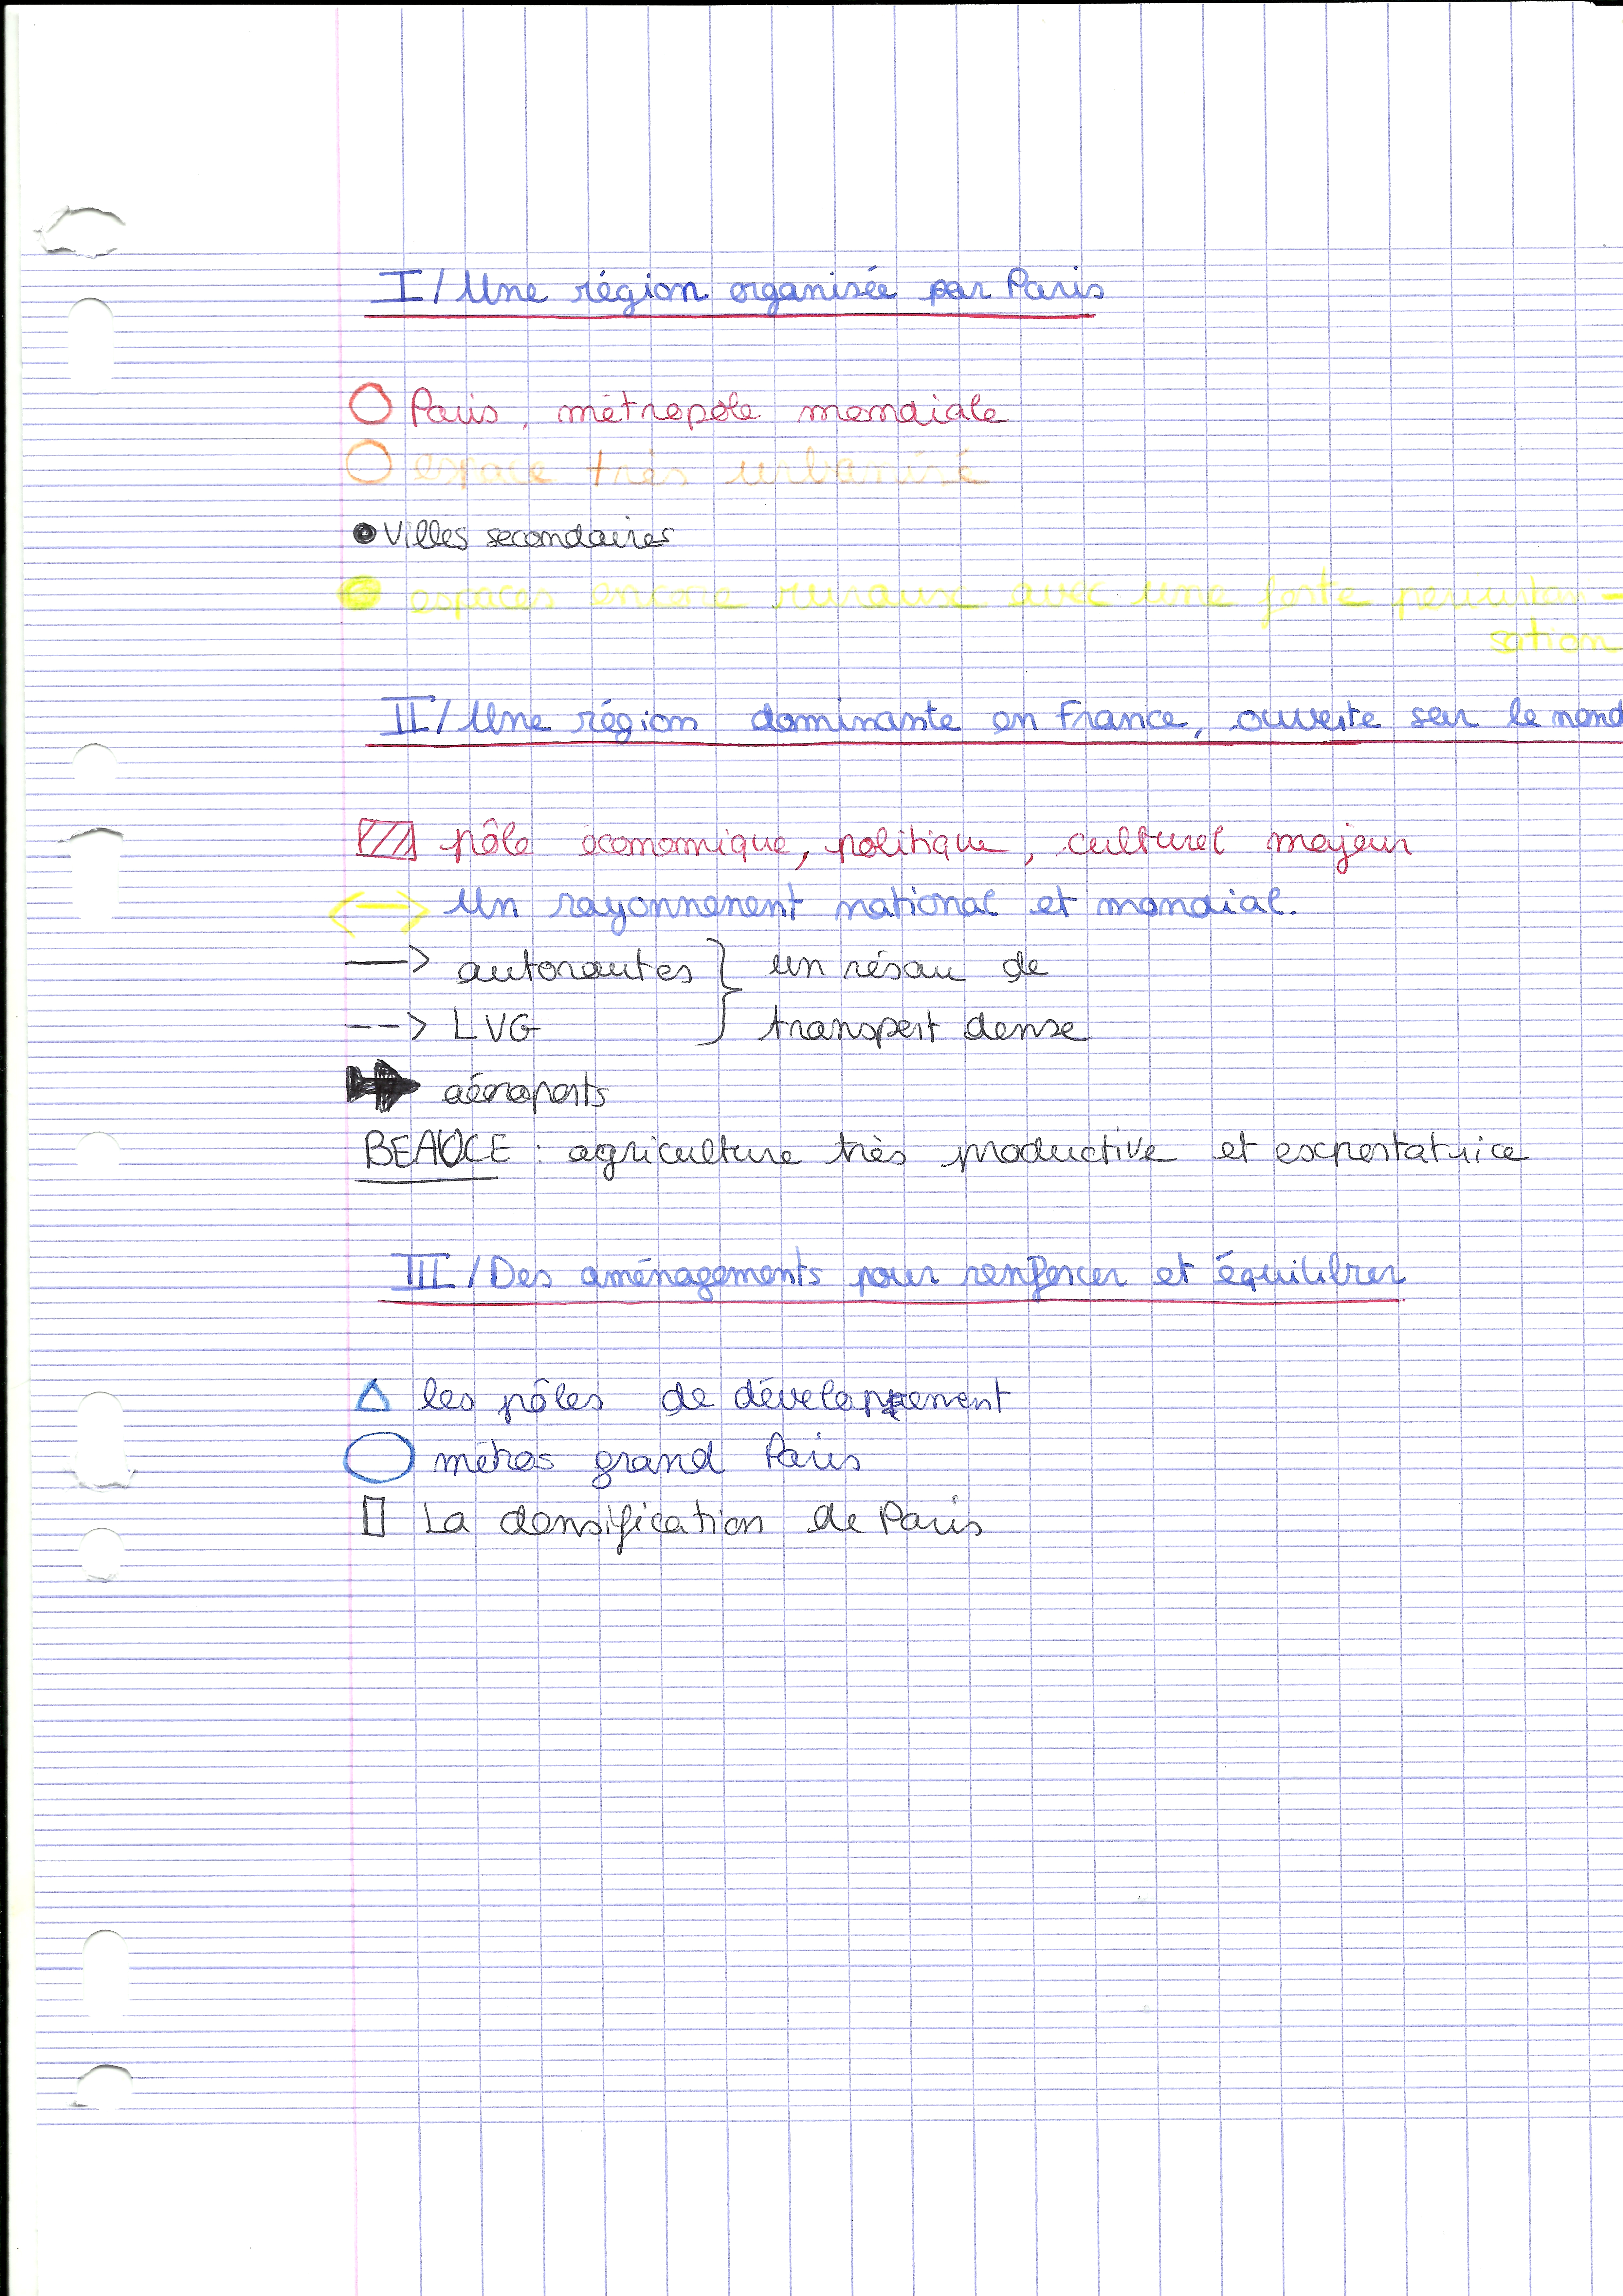 I/ Une région organisée par Paris
Paris, métropole mondiale
espace très urbanisé
Villes secondaires
espaces encore ruraux avec une forte
sation
II/ Une région dominante en France, ouverte sur le mond
pôle économique, politique, culturel majeur
Un rayonnement national et mondial.
autoroutes } un résau de
--> LVG } transport dense
aéroports
BEAUCE : agriculture très productive et exportatrice
III/ Des aménagements pour renforcer et équilibrer
les pôles de développement
métros grand Paris
La densification de Paris